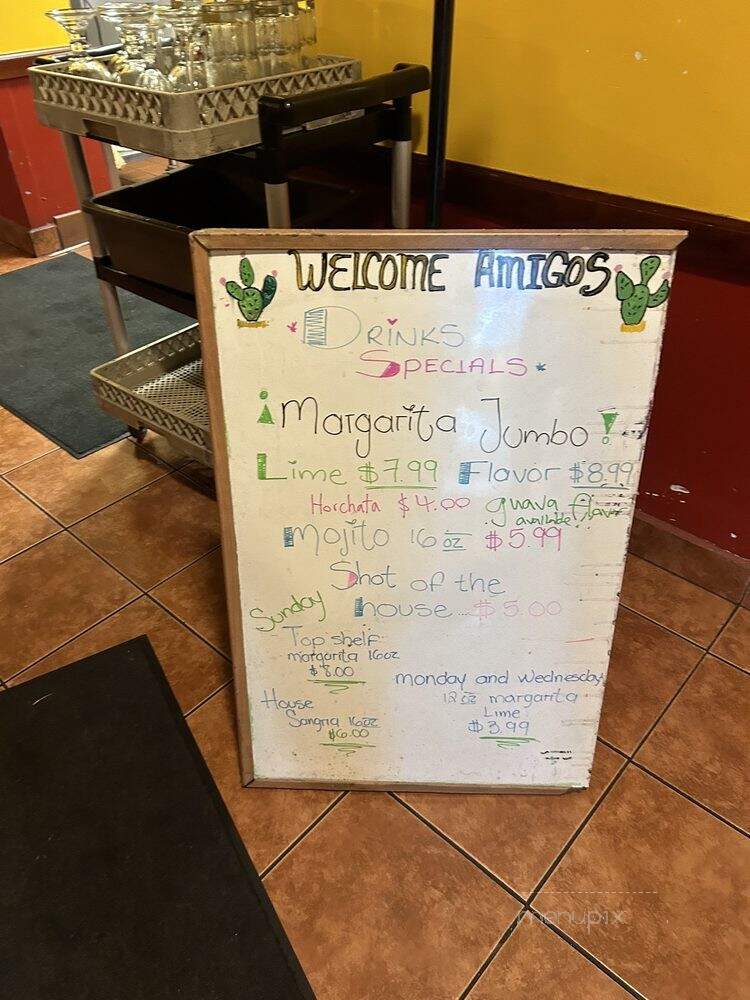 WELCOME AMIGOS
DRiNKS
SPECiALS
¡Margarita Jumbo!
Lime $7.99 Flavor $8.99
Horchata $4.00 guava flavor
available!
Mojito 16 oz $5.99
Shot of the
house $5.00
Sunday
Top shelf
margarita 16oz
$8.00
monday and wednesday
12 oz margarita
Lime
$3.99
House
Sangria 16oz
$6.00
menupix